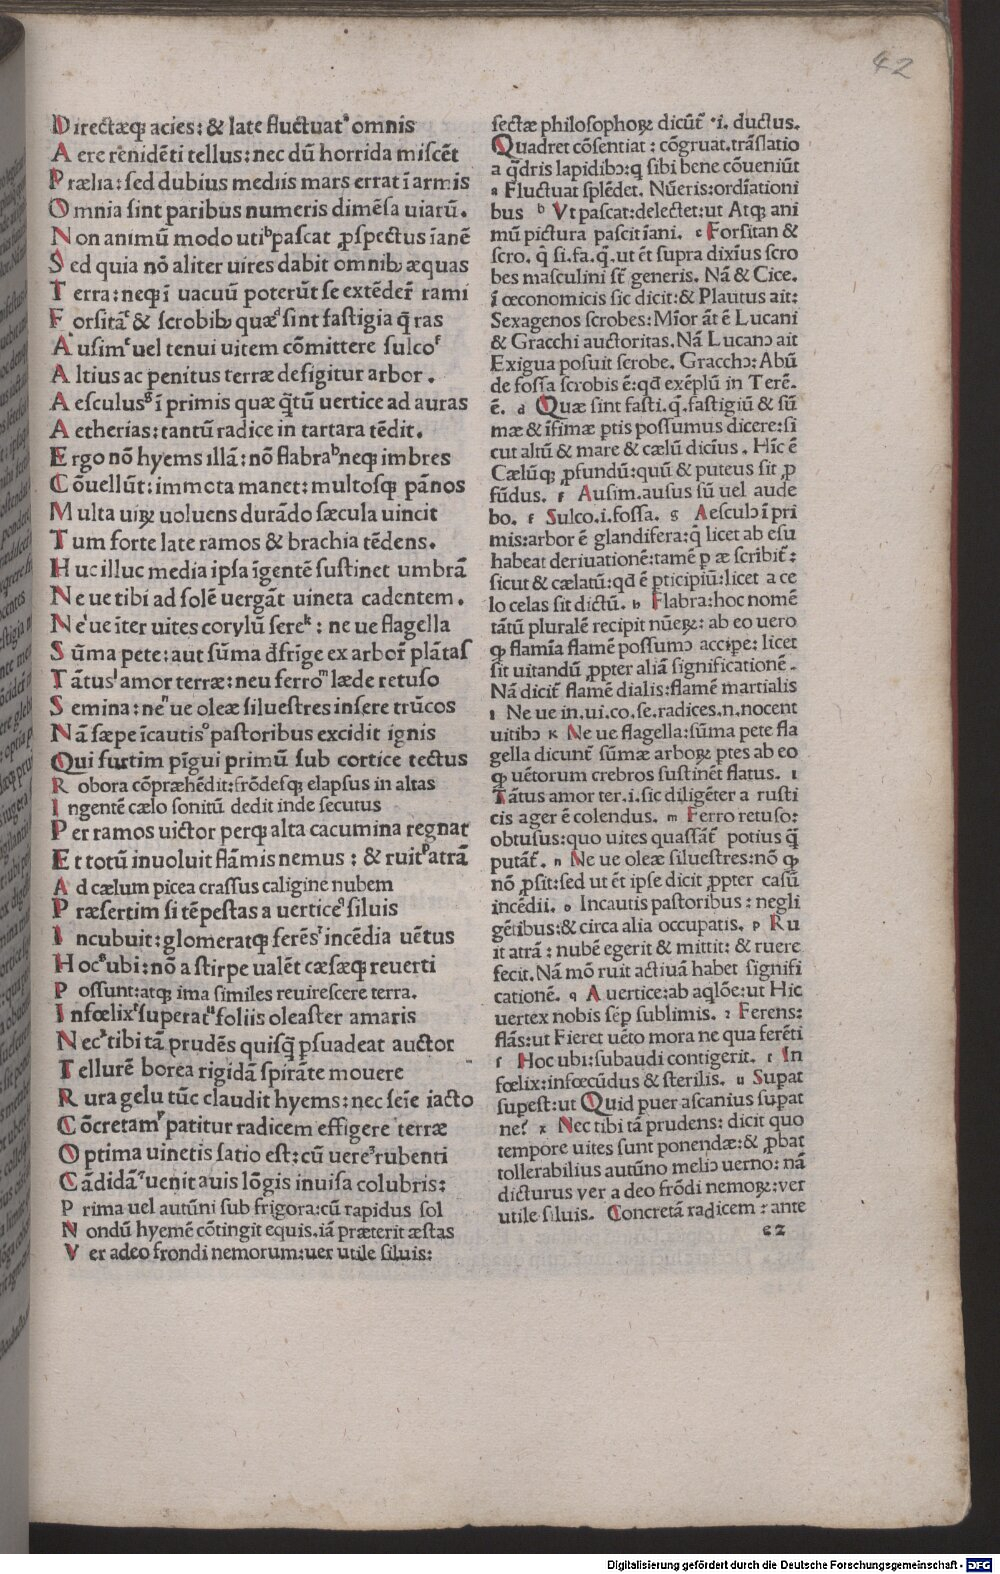 42
Directæq; acies: & late fluctuatᵃ omnis
Aere renidēti tellus: nec dū horrida miscēt
Prælia: sed dubius mediis mars errat ī armis
Omnia sint paribus numeris dimēsa uiarū.
Non animū modo utiᵇ pascat ꝓspectus īanē
Sed quia nō aliter uires dabit omnibꝰ æquas
Terra: neqꝫ ī uacuū poterūt se extēder̄ rami
Forsitāᶜ & scrobibꝰ quæᵈ sint fastigia q̄ras
Ausimᵉ uel tenui uitem cōmittere sulcoᶠ
Altius ac penitus terræ defigitur arbor.
Aesculusᵍ ī primis quæ q̄tū uertice ad auras
Aetherias: tantū radice in tartara tēdit.
Ergo nō hyems illā: nō flabraʰ neqꝫ imbres
Cōuellūt: immota manet: multosqꝫ pānos
Multa uiꝝ uoluens durādo sæcula uincit
Tum forte late ramos & brachia tēdens.
Huc illuc media ipsa īgentē sustinet umbrā
Neue tibi ad solē uergāt uineta cadentem.
Neⁱue īter uites corylū sereᵏ: ne ue flagella
Sūma pete: aut sūma đfrīge ex arbor̄ plātas
Tātusˡ amor terræ: neu ferroᵐ læde retuso
Semina: neⁿ ue oleæ siluestres insere trūcos
Nā sæpe īcautisᵒ pastoribus excidit ignis
Qui furtim pīgui primū sub cortice tectus
Robora cōpræhēdit: frōdesqꝫ elapsus in altas
Ingentē cælo sonitū dedit inde secutus
Per ramos uictor perqꝫ alta cacumina regnat
Et totū inuoluit flāmis nemus: & ruitᵖ atrā
Ad cælum picea crassus caligine nubem
Præsertim si tēpestas a uertice siluis
Incubuit: glomeratqꝫ ferēs incēdia uētus
Hoc ubi: nō a stirpe ualēt cæsæqꝫ reuerti
Possunt: atqꝫ ima similes reuirescere terra.
Infœlix superatᵘ foliis oleaster amaris
Necˣ tibi tā prudēs quisq̄ ꝑsuadeat auctor
Tellurē borea rigidā spirāte mouere
Rura gelu tūc claudit hyems: nec seīe iacto
Cōcretam patitur radicem effigere terræ
Optima uinetis satio est: cū uere rubenti
Cādidā uenit auis lōgis inuisa colubris:
Prima uel autūni sub frigora: cū rapidus sol
Nondū hyemē cōtingit equis. iā præterit æstas
Ver adeo frondi nemorum: uer utile siluis:
sectæ philosophoꝝ dicūt̄ .i. ductus.
Quadret cōsentiat: cōgruat. trāslatio
a q̄dris lapidibꝰ: q sibi bene cōueniūt
a Fluctuat splēdet. Nūeris: ordīationi
bus b Vt pascat: delectet: ut Atqꝫ ani
mū pictura pascit īani. c Forsitan &
scro. q̄ si. fa. q̄. ut ēt supra dixīus scro
bes masculini st̄ generis. Nā & Cice.
ī œconomicis sic dicit: & Plautus ait:
Sexagenos scrobes: Mīor āt ē Lucani
& Gracchi auctoritas. Nā Lucanꝰ ait
Exigua posuit scrobe. Gracchꝰ: Abū
de fossa scrobis ē: qđ exēplū in Terē.
ē. d Quæ sint fasti. q̄. fastigiū & sū
mæ & īfimæ ꝑtis possumus dicere: si
cut altū & mare & cælū dicīus. Hīc ē
Cælūqꝫ ꝓfundū: quū & puteus sit ꝓ
fūdus. e Ausim. ausus sū uel aude
bo. f Sulco. i. fossa. g Aesculꝰ ī pri
mis: arbor ē glandifera: q̄ licet ab esu
habeat deriuationē: tamē ꝑ æ scribit̄:
sicut & cælatū: qđ ē ꝑticipiū: licet a ce
lo celas sit dictū. h Flabra: hoc nomē
tātū pluralē recipit nūeꝝ: ab eo uero
ꝙ flamīa flamē possumꝰ accipe: licet
sit uitandū ꝓpter aliā significationē.
Nā dicit̄ flamē dialis: flamē martialis
i Ne ue in. ui. co. se. radices. n. nocent
uitibꝰ k Ne ue flagella: sūma pete fla
gella dicunt̄ sūmæ arboꝝ ꝑtes ab eo
ꝙ uētorum crebros sustinēt flatus. l
Tātus amor ter. i. sic diligēter a rusti
cis ager ē colendus. m Ferro retuso:
obtusus: quo uites quassāt̄ potius q̄
putāt̄. n Ne ue oleæ siluestres: nō ꝙ
nō ꝓsit: sed ut ēt ipse dicit ꝓpter casū
incēdii. o Incautis pastoribus: negli
gētibus: & circa alia occupatis. p Ru
it atrā: nubē egerit & mittit: & ruere
fecit. Nā mō ruit actiuā habet signifi
cationē. q A uertice: ab aqlōe: ut Hic
uertex nobis sēp sublimis. r Ferens:
flās: ut Fieret uēto mora ne qua ferēti
s Hoc ubi: subaudi contigerit. t In
fœlix: infœcūdus & sterilis. u Supat
supest: ut Quid puer ascanius supat
ne? x Nec tibi tā prudens: dicit quo
tempore uites sunt ponendæ: & ꝓbat
tollerabilius autūno meliꝰ uerno: nā
dicturus ver a deo frōdi nemoꝝ: ver
utile siluis. Concretā radicem: ante
e2
Digitalisierung gefördert durch die Deutsche Forschungsgemeinschaft - DFG